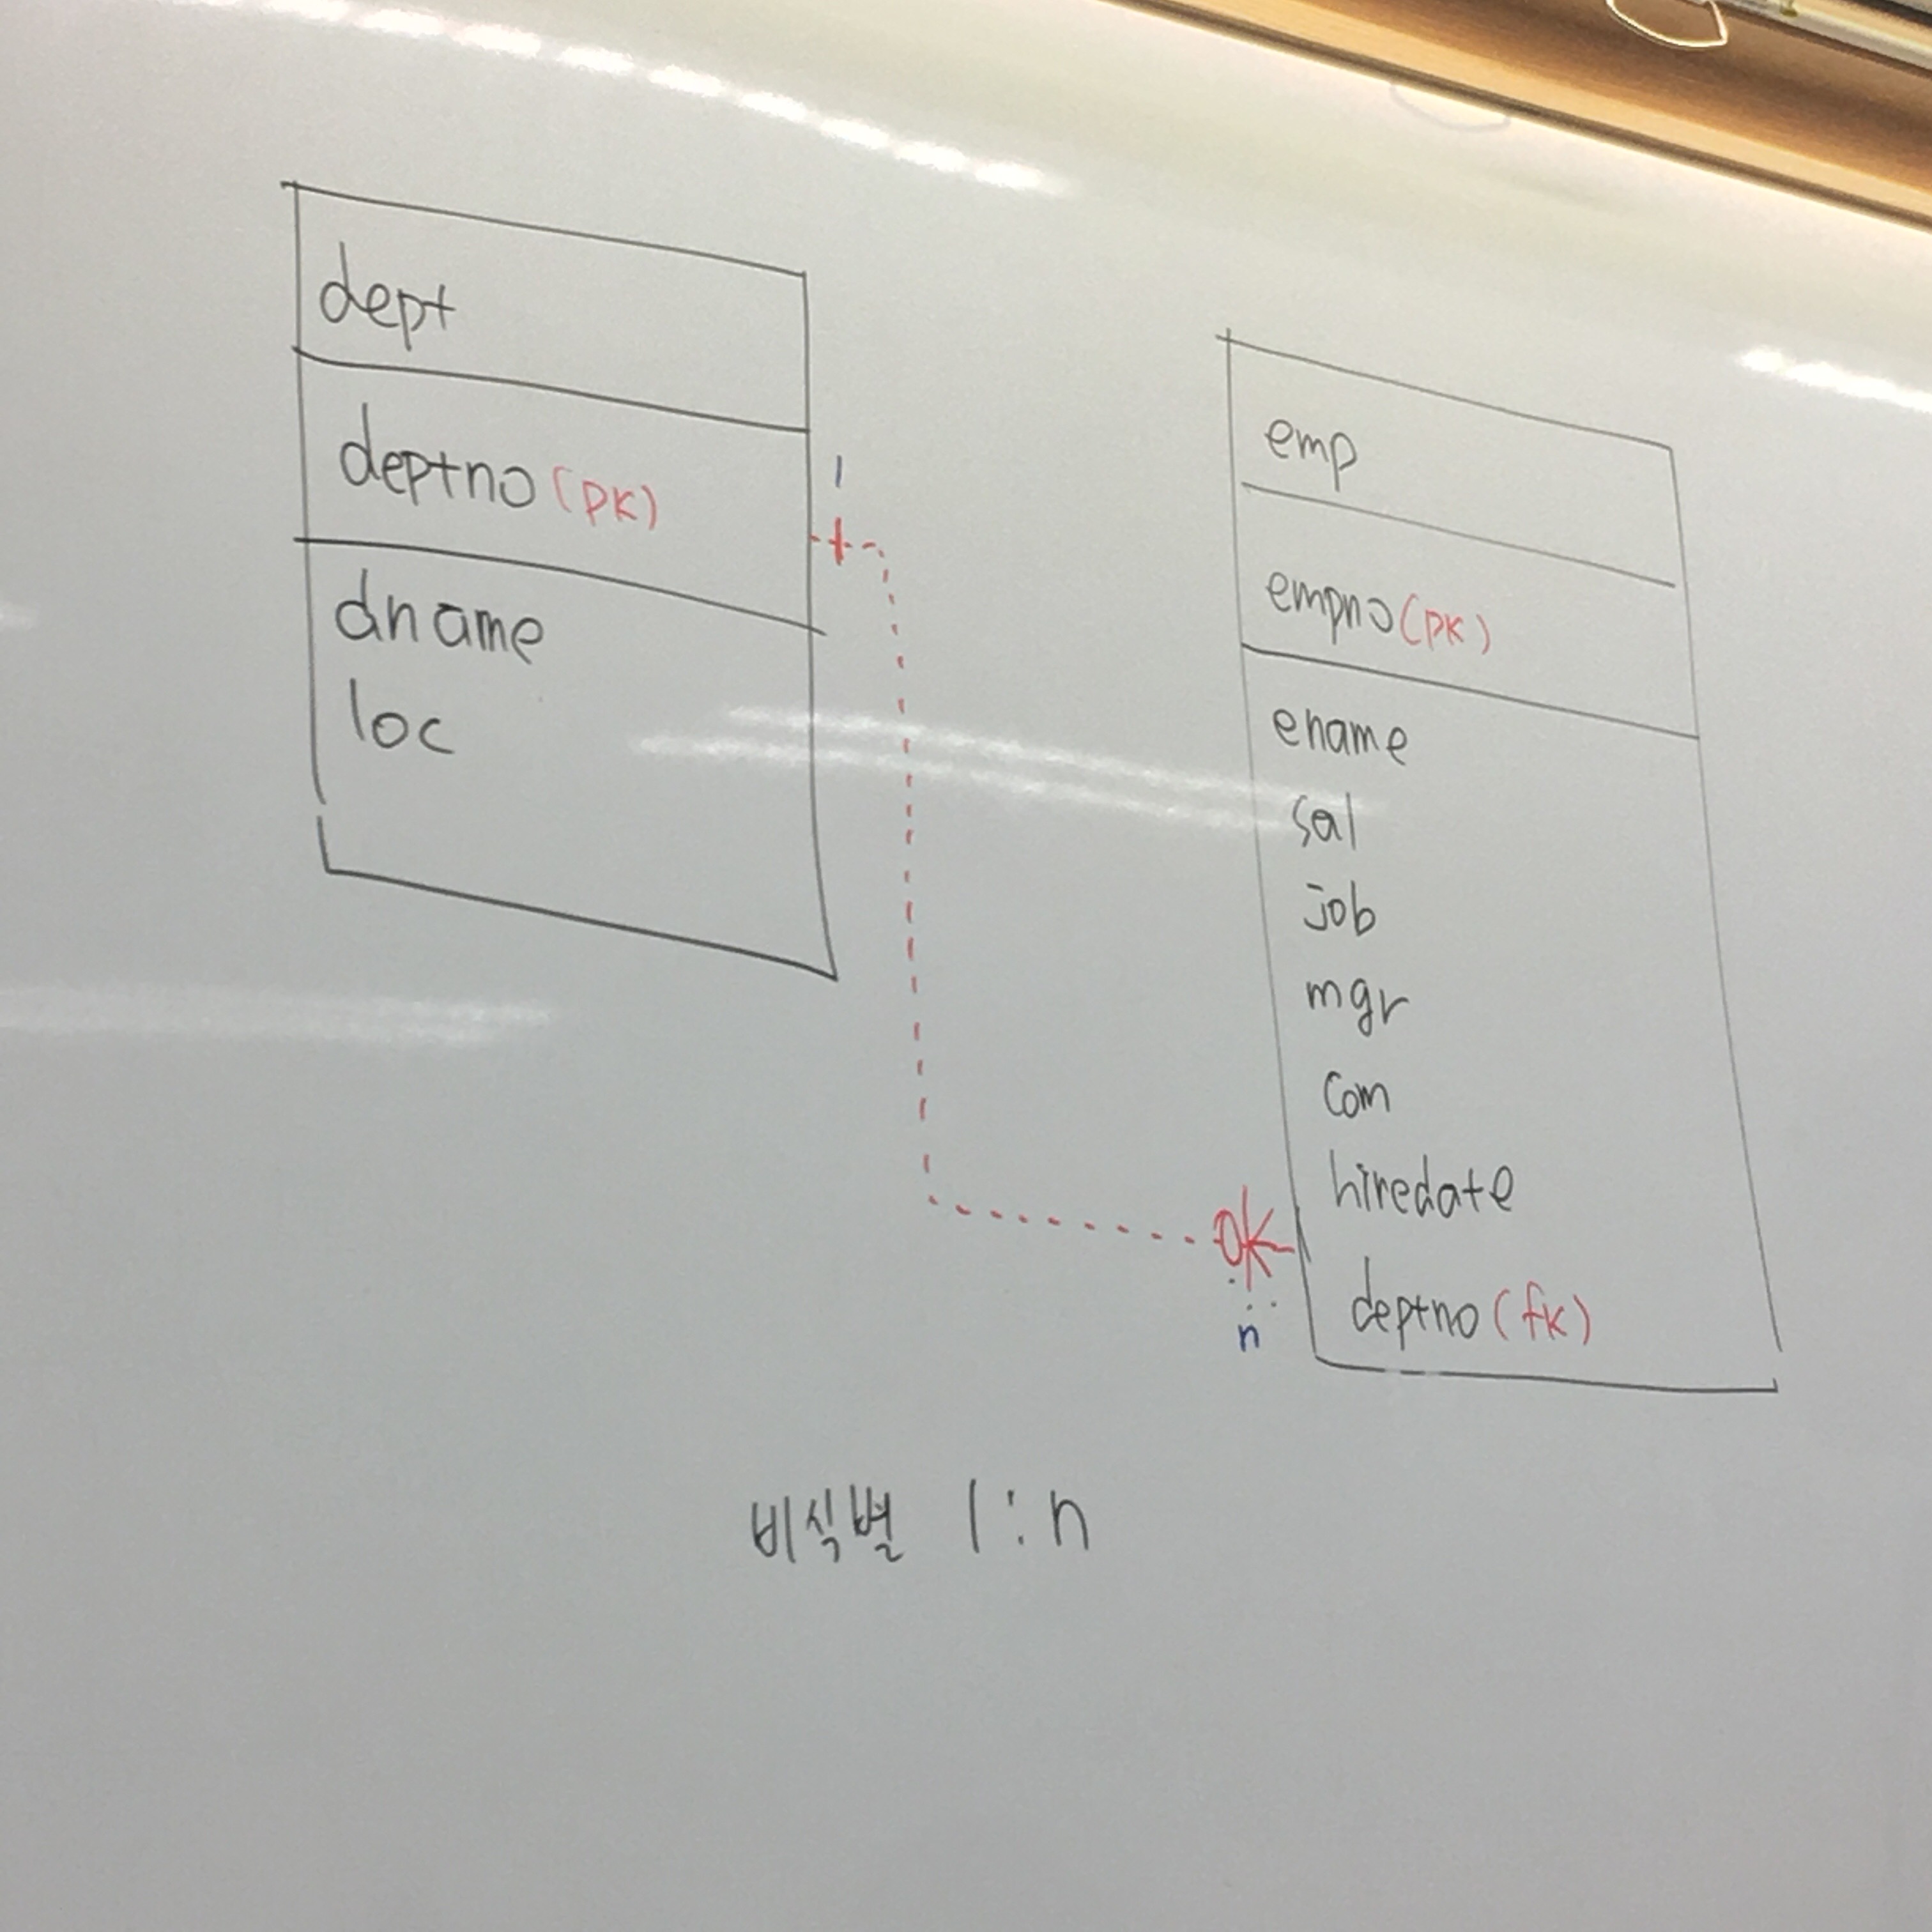 dept
deptno (pk)
dname
loc
1
emp
empno (pk)
ename
sal
job
mgr
com
hiredate
deptno (fk)
n
비식별 1:n